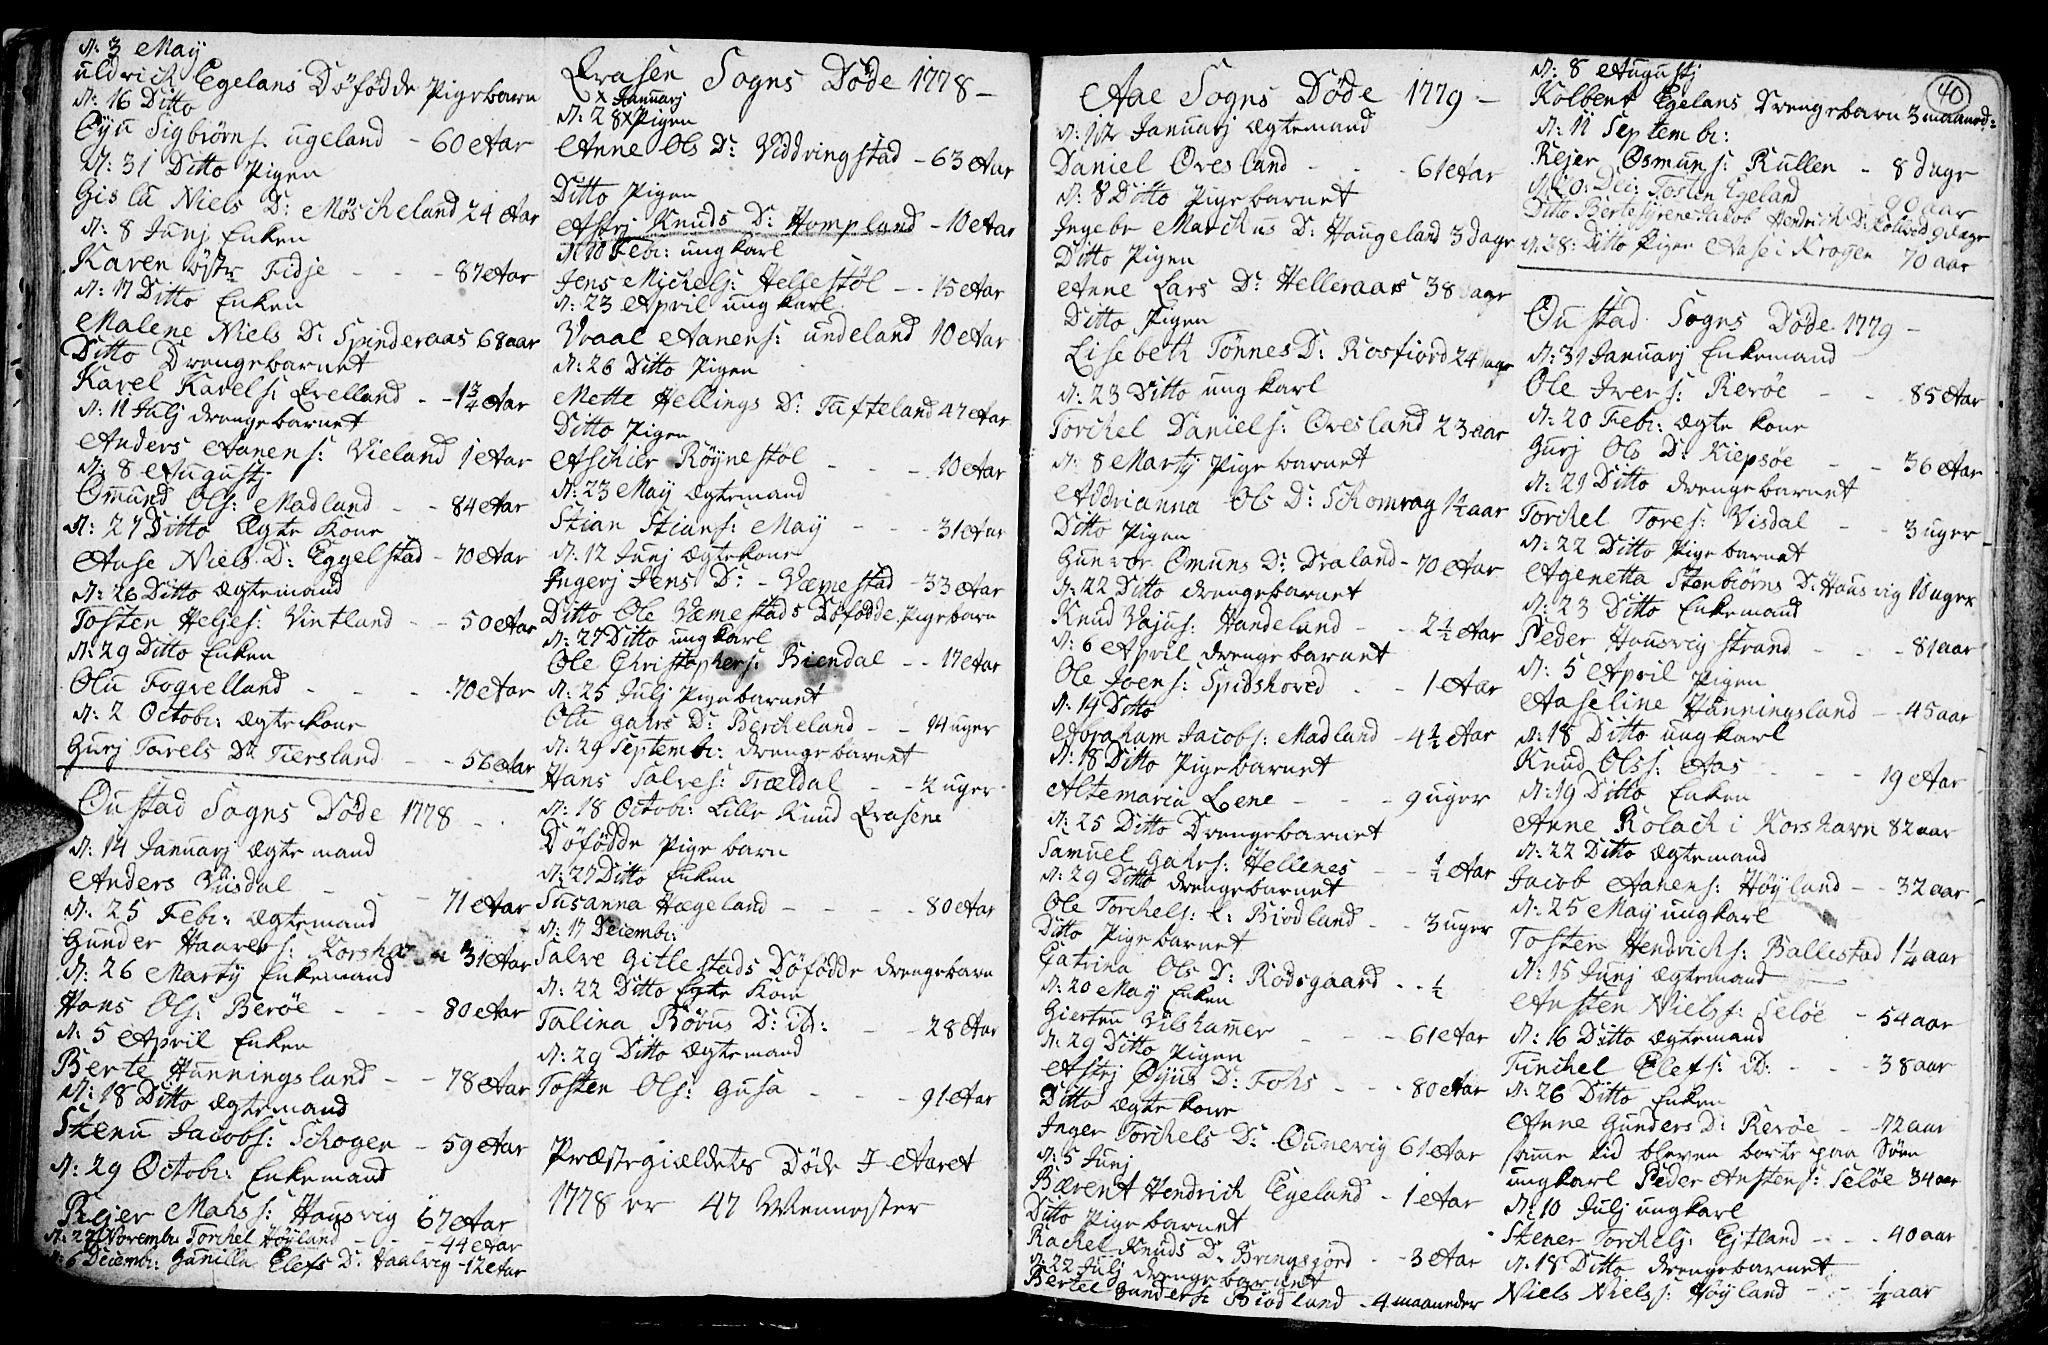 N: 3 May
uldrick Egelans Döfödde Pigebarn
N: 16 Ditto
Öyu Sigbiörns. ugeland - 60 Aar
N: 31 Ditto Pigen
Gisla Niels D: Möscheland 24 Aar
N: 8 Junj Enken
Karen östr Fidje - - - 87 Aar
N: 17 Ditto Enken
Malene Niels D: Spinderaas 68 aar
Ditto Drengebarnet
Karel Karels: Erelland - - 1¾ Aar
N: 11 Julj drengebarnet
Anders Aanens: Vieland 1 Aar
N: 8 Augustj
Omund Ols: Madland - - 84 Aar
N: 27 Ditto Ægte Kone
Aase Niels D: Eggelstad - 70 Aar
N: 26 Ditto Ægtemand
Tosten Heljes: Vintland - - 50 Aar
N: 29 Ditto Enken
Olu Fogvelland - - - 70 Aar
N: 2 Octobr: Ægte kone
Gurj Tarels D: Tiersland - - 56 Aar
Oustad Sogns Döde 1778 -
N: 14 Januarj Ægte mand
Anders Vüsdal - - - 71 Aar
N: 25 Febr: Ægtemand
Gunder Haaves: Korshavn 31 Aar
N: 26 Martij Enkemand
Hans Ols: Beröe - - - 80 Aar
N: 5 April Enken
Berte Hunningsland - - 78 Aar
N: 18 Ditto Ægtemand
Stenu Jacobs: Schogen - 59 Aar
N: 29 Octobr: Enkemand
Rejer Mahs: Hausvig 67 Aar
N: 27 Novembr: Torchel Höyland - - - 44 Aar
N: 6 Decembr: Gunille Elefs D: Vaalvig - 12 Aar
Erasen Sogns Döde 1778 -
x Januarj
N: 28 x Pigen
Anne Ols D: Viddringstad - 63 Aar
Ditto Pigen
Astrj Knuds D: Hompland - 10 Aar
N: 10 Febr: ung karl
Jens Michels: Hellestöl - - 15 Aar
N: 23 April ung karl
Vraal Aanens: undeland 10 Aar
N: 26 Ditto Pigen
Mette Hellings D: Tafteland 47 Aar
Ditto Pigen
Aschier Röynestöl - - - 10 Aar
N: 23 May Ægtemand
Stian Stians: May - - - 31 Aar
N: 12 Junj Ægtekone
Ingerj Jens D: - Væmestad - 33 Aar
Ditto Ole Væmestads Döfödde Pigebarn
N: 27 Ditto ung karl
Ole Christophers: Biendal - - 17 Aar
N: 25 Julj Pigebarnet
Olu gahrs D: Bercheland - - 14 uger
N: 29 Septembr: drengebarnet
Hans Salves: Trældal - - 2 uger
N: 18 Octobr: Lille Knud Erasens
Döfödde Pige barn
N: 27 Ditto Enken
Susanna Hægeland - - - - 80 Aar
N: 17 Decembr:
Salve Gitlestads Döfödde drengebarn
N: 22 Ditto Egte Kone
Talina Börus D: iD: - - 28 Aar
N: 29 Ditto Ægtemand
Tosten Ols: Gusa - - - - 91 Aar
Præstegieldets Döde J Aaret
1778 er 47 Mennester
Aae Sogns Döde 1779 -
N: 12 Januarj Ægtemand
Daniel Øvesland - - - 61 Aar
N: 8 Ditto Pigebarnet
Ingebr Marchus D: Haugeland 3 dage
Ditto Pigen
Anne Lars D: Helleraas 38 dage
Ditto Pigen
Lisebeth Tönnes D: Rosfiord 24 dage
N: 23 Ditto ung karl
Torchel Daniels: Øvesland 23 aar
N: 8 Martij Pige barnet
Addrianna Ols D: Schomrag 1½ aar
Ditto Pigen
Gunvor Omuns D: Draland - 70 Aar
N: 22 Ditto drengebarnet
Knud Vajus: Handeland - - 2½ Aar
N: 6 April drenge barnet
Ole Joens: Spidshoved - - 1 Aar
N: 14 Ditto
Abraham Jacobs: Madland - 4½ Aar
N: 18 Ditto Pigebarnet
Altemaria Lene - - 9 uger
N: 25 Ditto Drengebarnet
Samuel Gahrs: Hellenes - - ½ Aar
N: 29 Ditto drengebarnet
Ole Torchels: l: Biodland - - 3 uger
Ditto Pigebarnet
Catrina Ols D: Rödsgaard - - ½
N: 20 May Enken
Giertru Vilshamer - - - 61 Aar
N: 29 Ditto Pigen
Astrj Öyus D: Fohs - - - 80 Aar
Ditto Ægte kone
Inger Torchels D: Ounevig 61 Aar
N: 5 Junj
Bærent Hendrich Egeland - 1 Aar
Ditto Pigebarnet
Rachel Knuds D: Bringsjord - - 3 Aar
N: 22 Julj drenge barnet
Bertel Gunders: Biodland - 4 maaneder
40
N: 8 Augustj
Kolbent Egelans Drengebarn 3 maaned:
N: 11 Septembr:
Rejer Osmuns: Rullen - 8 dage
N: 20: Dec: Tosten Egeland 90 aar
Ditto Berte Syrene Jakob Hendrich D: Kollevod 9 dage
N. 28: Ditto Pigen Aase i Krogen 70 aar
Oustad Sogns Döde 1779 -
N: 31 Januarj Enkemand
Ole Ivers: Reröe - - - 85 Aar
N: 20 Febr: Ægte kone
Gurj Ols D: Kiepsöe - - 36 Aar
N: 21 Ditto drengebarnet
Torchel Tores: Visdal - - 3 uger
N: 22 Ditto Pige barnet
Agenetta Stenbiörns D: Hausvig 18 uger
N: 23 Ditto Enkemand
Peder Hausvig strand - - - 81 aar
N: 5 April Pigen
Aaseline Hunningsland - - 45 aar
N: 18 Ditto ung karl
Knud Ols: Aas - - - 19 Aar
N: 19 Ditto Enken
Anne Rolach i Korshavn 82 aar
N: 22 Ditto Ægtemand
Jacob Aanens: Höyland - - 32 aar
N: 25 May ung karl
Tosten Hendrichs: Ballestad 1¼ aar
N: 15 Junj Ægtemand
Ansten Niels: Selöe - 54 aar
N: 16 Ditto Ægtemand
Tinchel Elefs: iD: - - - 38 aar
N: 26 Ditto Enken
Anne Gunders D: Reröe - - 72 aar
same tid bleven borte paa Söen
ungkarl Peder Anstens: Selöe 34 aar
N: 10 Julj ungkarl
Stener Torchels: Ejtland - - - 40 aar
N: 18 Ditto drengebarnet
Niels Niels: Höyland - - ¼ aar